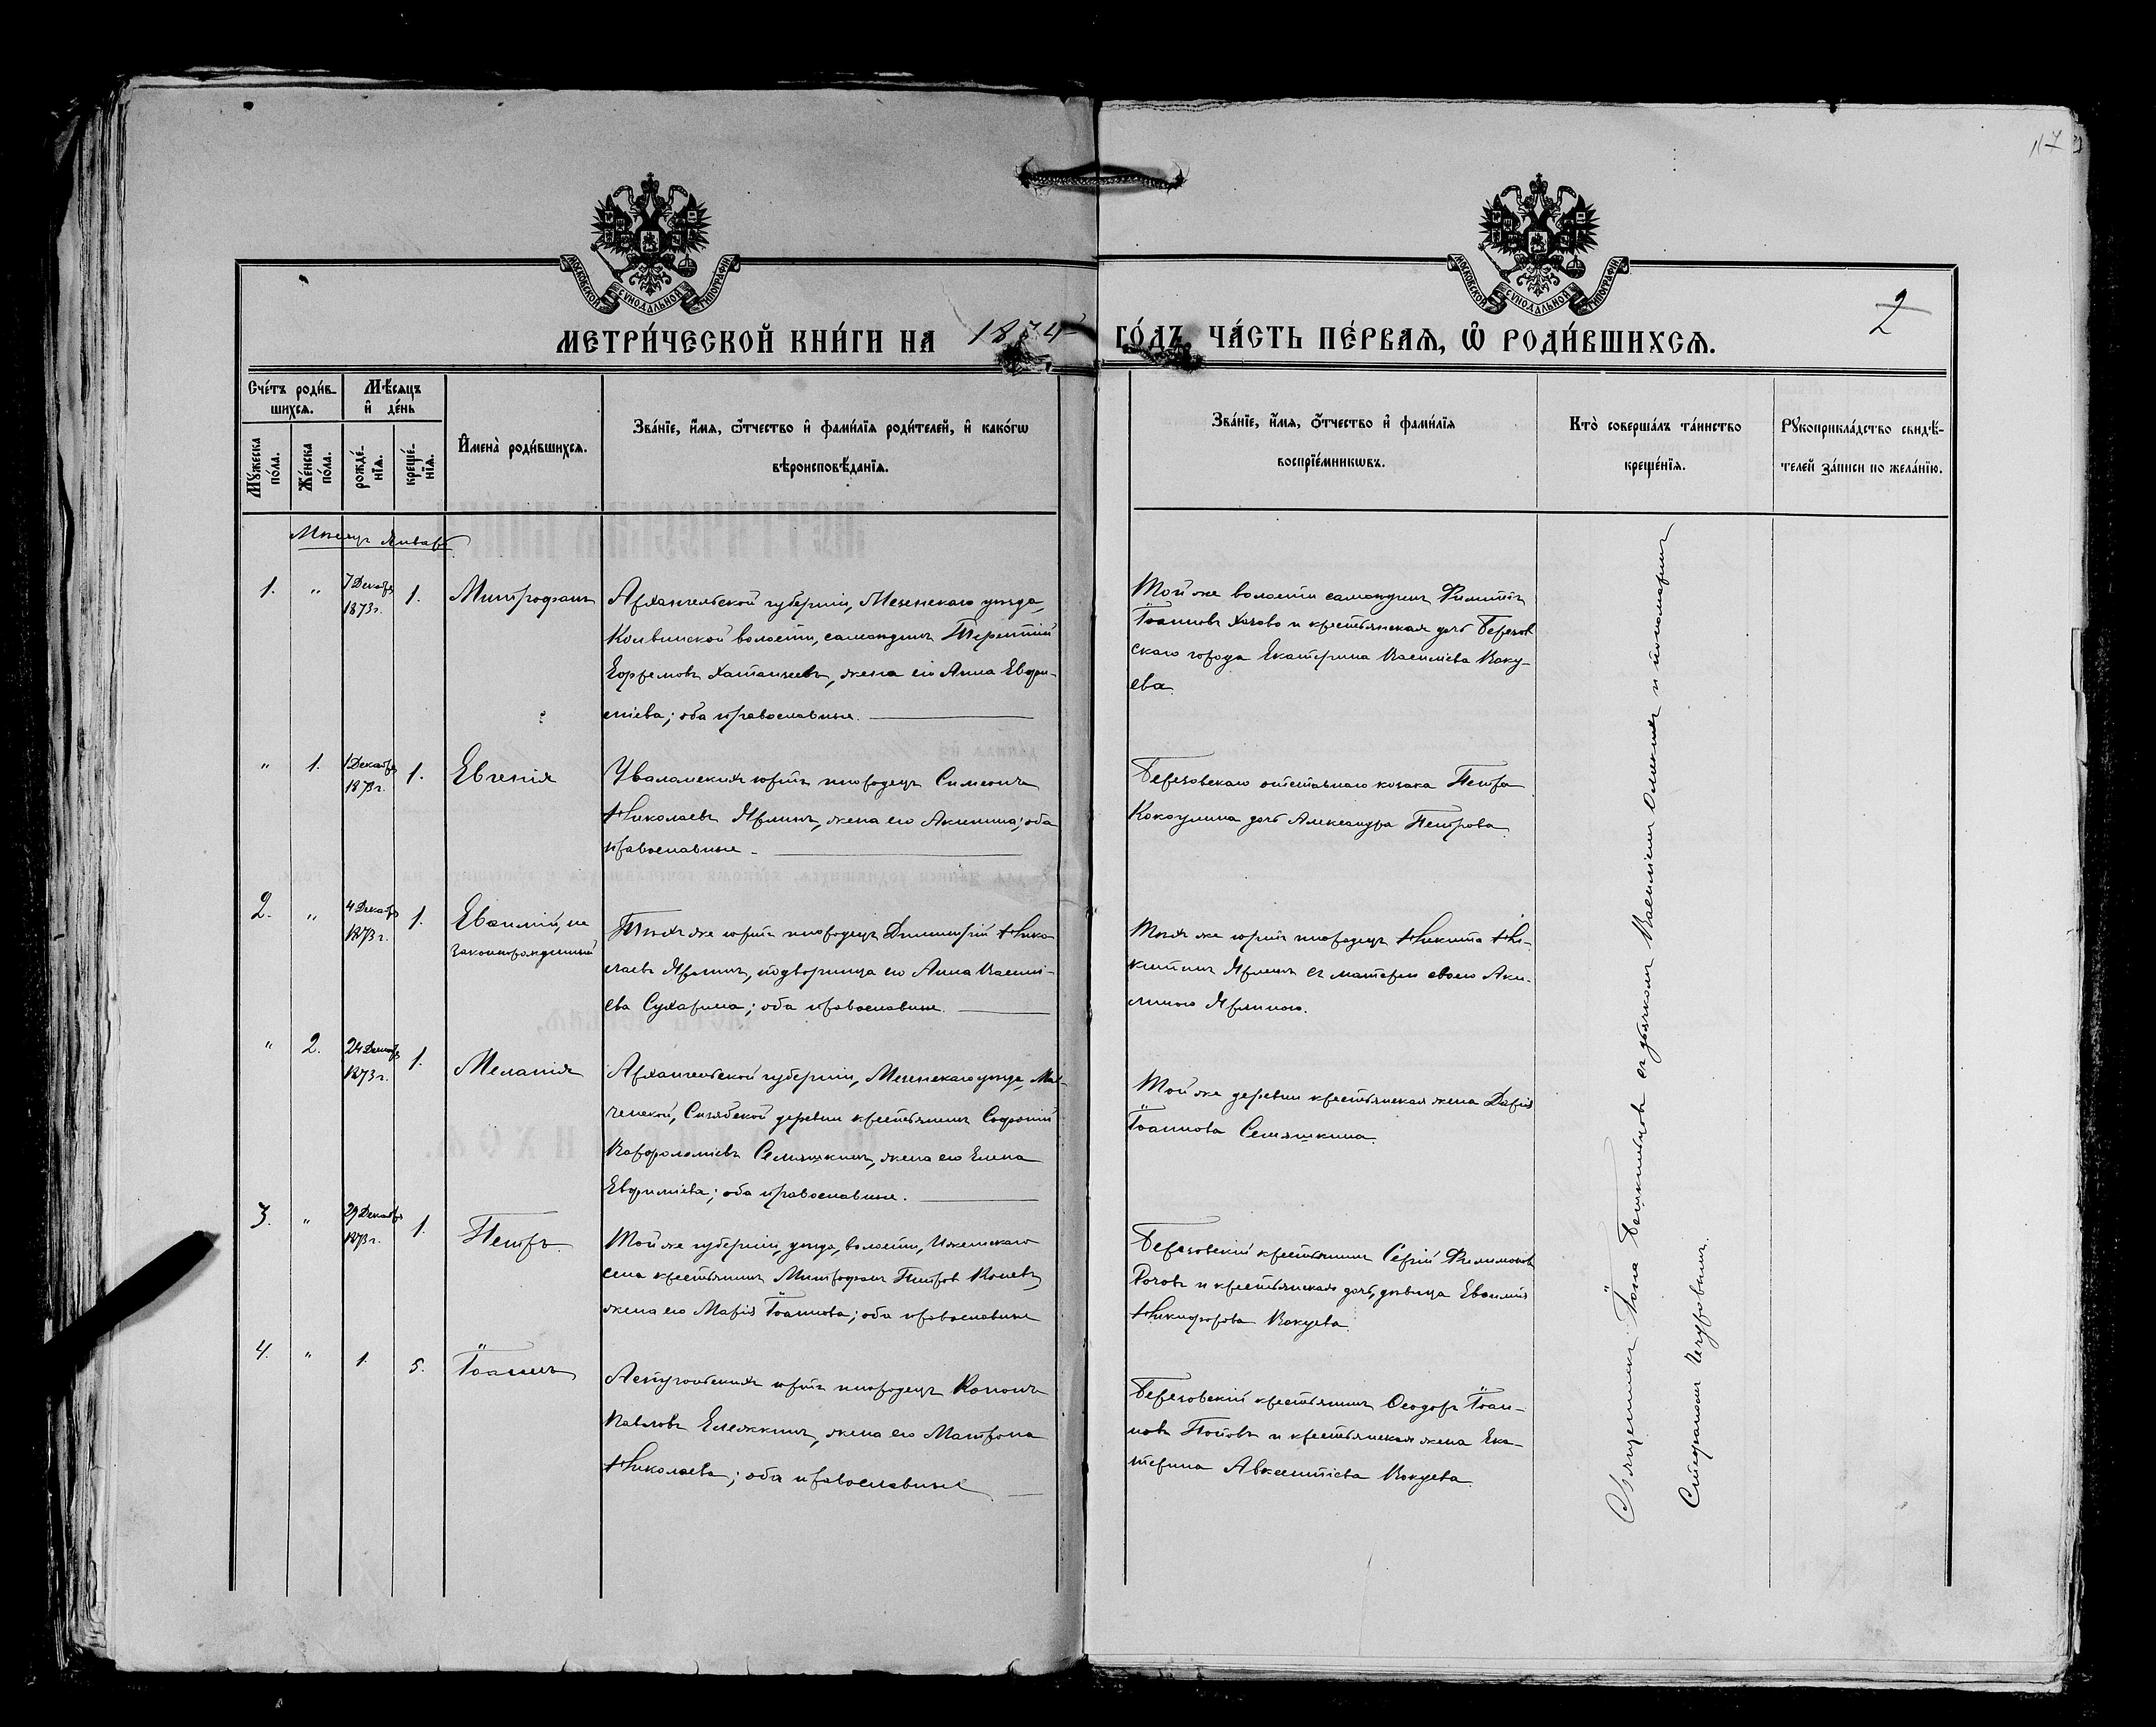 117
МОСКОВСКОЙ СѴНОДАЛЬНОЙ ТИПОГРАФІИ
МОСКОВСКОЙ СѴНОДАЛЬНОЙ ТИПОГРАФІИ
2
МЕТРИ́ЧЕСКОЙ КНИ́ГИ НА 1874 ГО́ДЪ, ЧА́СТЬ ПЕ́РВАѦ, Ѡ҆ РОДИ́ВШИХСѦ.
Сче́тъ роди́в-
шихсѧ.
Мѣ́сѧцъ
и҆ де́нь
Мꙋ́жеска
по́ла.
Же́нска
по́ла.
рожде́-
нїѧ.
креще́-
нїѧ.
И҆мена̀ роди́вшихсѧ.
Зва́нїе, и҆́мѧ, ѻ҆́тчество и҆ фами́лїѧ роди́телей, и҆ како́гѡ
вѣроисповѣ́данїѧ.
Зва́нїе, и҆́мѧ, ѻ҆́тчество и҆ фами́лїѧ
воспрїе́мникѡвъ.
Кто̀ соверша́лъ та́инство
креще́нїѧ.
Рꙋкоприкла́дство свидѣ́-
телей за́писи по жела́нїю.
Мѣсяцъ Январь
1. " 7 Декабр. 1873 г. 1. Митрофанъ
Архангельской губерніи, Мезенскаго уѣзда,
Колвинской волости, самоѣдинъ Терентій
Ефремовъ Хатанзеевъ, жена его Анна Евфи-
міева; оба православные.
Той же волости самоѣдинъ
Іоанновъ и крестьянская дочь Березов
скаго города Екатерина Василіева Коку-
ева.
" 1. 1 Декабр. 1873 г. 1. Евгенія
юртъ инородецъ Симеонъ
Николаевъ Ярлинъ, жена его Акилина; оба
православные.
Березовскаго отставнаго козака Петра
Кокоулина дочь Александра Петрова.
2. " 4 Декабр. 1873 г. 1. Евѳимій, не
законнорожденный
Тѣхъ же юртъ инородецъ Димитрій Нико-
лаевъ Ярлинъ, подворница его Анна Васили-
ева Сухарина; оба православные.
Тѣхъ же юртъ инородецъ Никита Ни-
китинъ Ярлинъ съ матерью своею Аки-
линою Ярлиною.
" 2. 24 Декабр. 1873 г. 1. Меланія
Архангельской губерніи, Мезенскаго уѣзда, Мох-
ченской, Сизябской деревни крестьянинъ Софроній
Варфоломіевъ Семяшкинъ, жена его Елена
Евфиміева; оба православные.
Той же деревни крестьянская жена Дарія
Іоаннова Семяшкина.
3. " 29 Декабр. 1873 г. 1. Петръ.
Той же губерніи, уѣзда, волости, Ижемскаго
села крестьянинъ Митрофанъ Петров Каневъ,
жена его Марія Іоаннова; оба православные
Березовскій крестьянинъ Сергій Филимонов
Рочевъ и крестьянская дочь, дѣвица Евѳимія
Никифорова Кокуева.
4. " 1. 5. Іоаннъ
юртъ инородецъ Кононъ
Павловъ жена его Матрона
Николаева; оба православные
Березовскій крестьянинъ Ѳеодоръ Іоан-
новъ Поповъ и крестьянская жена Ека-
терина Авксентіева Кокуева.
Священникъ Іоаннъ съ дьячкомъ Василіемъ и пономаремъ
Стефаномъ